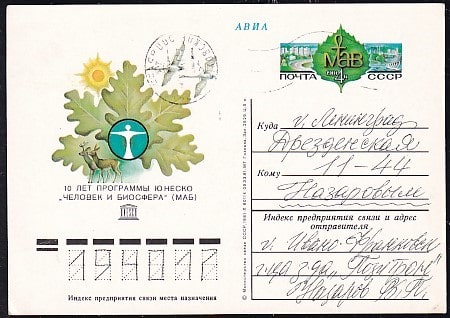 АВИА
МАВ
1981
4к
ПОЧТА СССР
10 ЛЕТ ПРОГРАММЫ ЮНЕСКО
"ЧЕЛОВЕК И БИОСФЕРА" (МАБ)
UNESCO
194017
Индекс предприятия связи места назначения
© Министерство связи СССР, 1981
Куда г. Ленинград
Дрезденская
11-44
Кому
Назаровым
Индекс предприятия связи и адрес
отправителя
г. Ивано-Франковск
Назаров В.П.